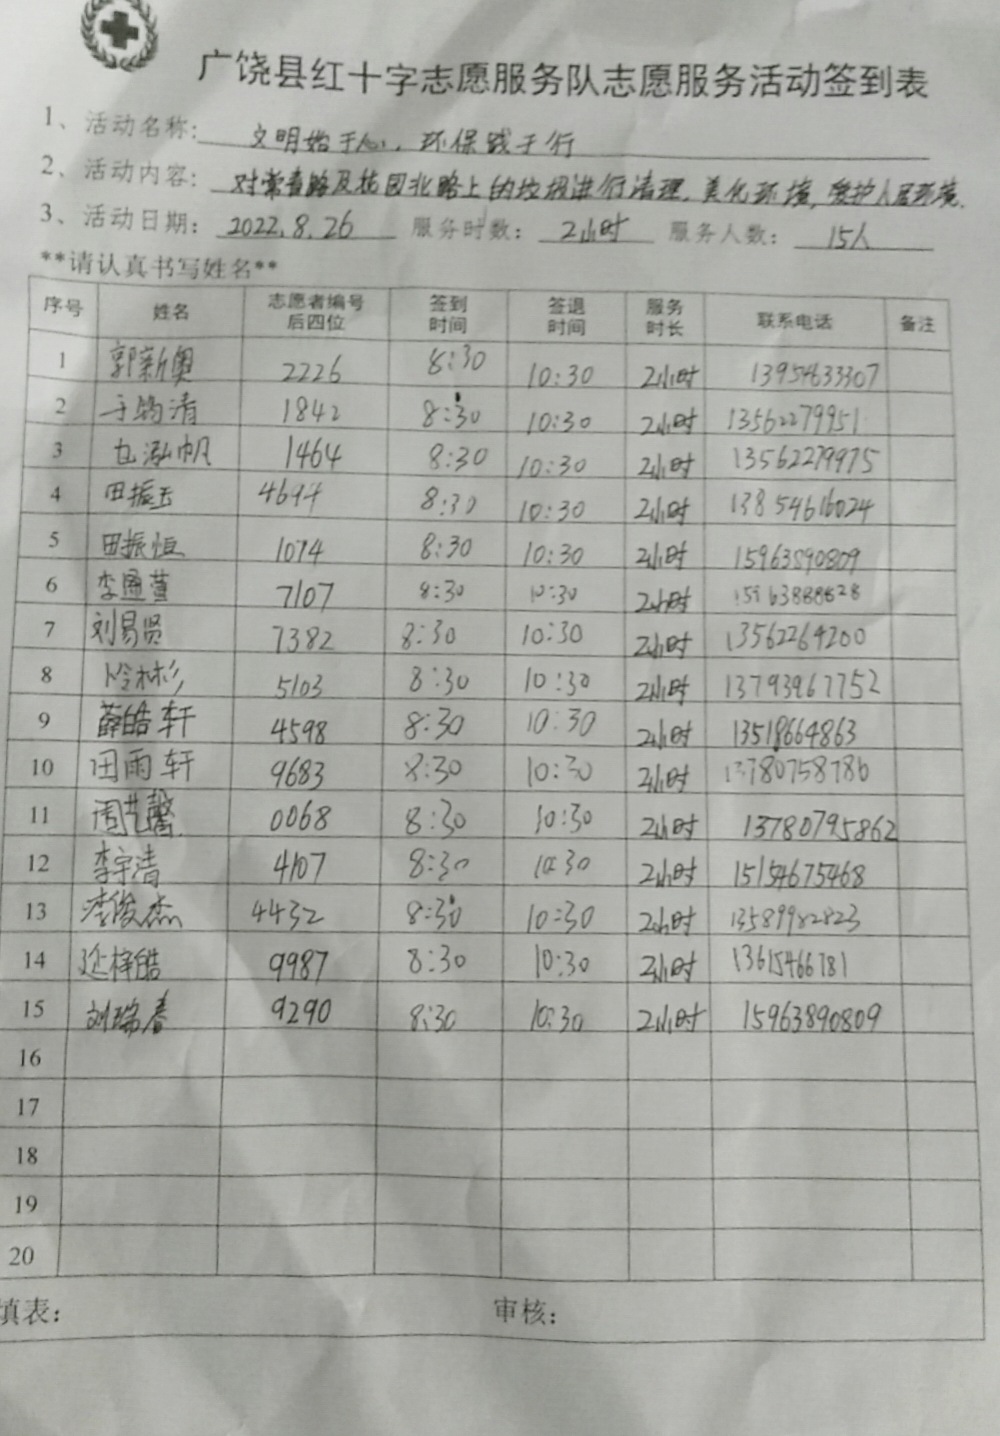 广饶县红十字志愿服务队志愿服务活动签到表
1、活动名称: 文明始于心，环保践于行
2、活动内容: 对常春路及桃园北路上的垃圾进行清理，美化环境，爱护人居环境.
3、活动日期: 2022.8.26 服务时数: 2小时 服务人数: 15人
**请认真书写姓名**
序号 姓名 志愿者编号后四位 签到时间 签退时间 服务时长 联系电话 备注
1 郭新奥 2226 8:30 10:30 2小时 13954633307
2 于鸣清 1842 8:30 10:30 2小时 13562279951
3 泓帆 1464 8:30 10:30 2小时 13562279975
4 田振玉 4694 8:30 10:30 2小时 13854616024
5 田振恒 1074 8:30 10:30 2小时 15963890809
6 李萱 7107 8:30 10:30 2小时 15963888828
7 刘易贤 7382 8:30 10:30 2小时 13562264200
8 彬 5103 8:30 10:30 2小时 13793967752
9 薛皓轩 4598 8:30 10:30 2小时 13518664863
10 田雨轩 9683 8:30 10:30 2小时 13780758786
11 周艺馨 0068 8:30 10:30 2小时 13780795862
12 李宇清 4107 8:30 10:30 2小时 15154675468
13 李俊杰 4432 8:30 10:30 2小时 13589982823
14 延梓皓 9987 8:30 10:30 2小时 13615466781
15 刘瑞春 9290 8:30 10:30 2小时 15963890809
16
17
18
19
20
填表: 审核: